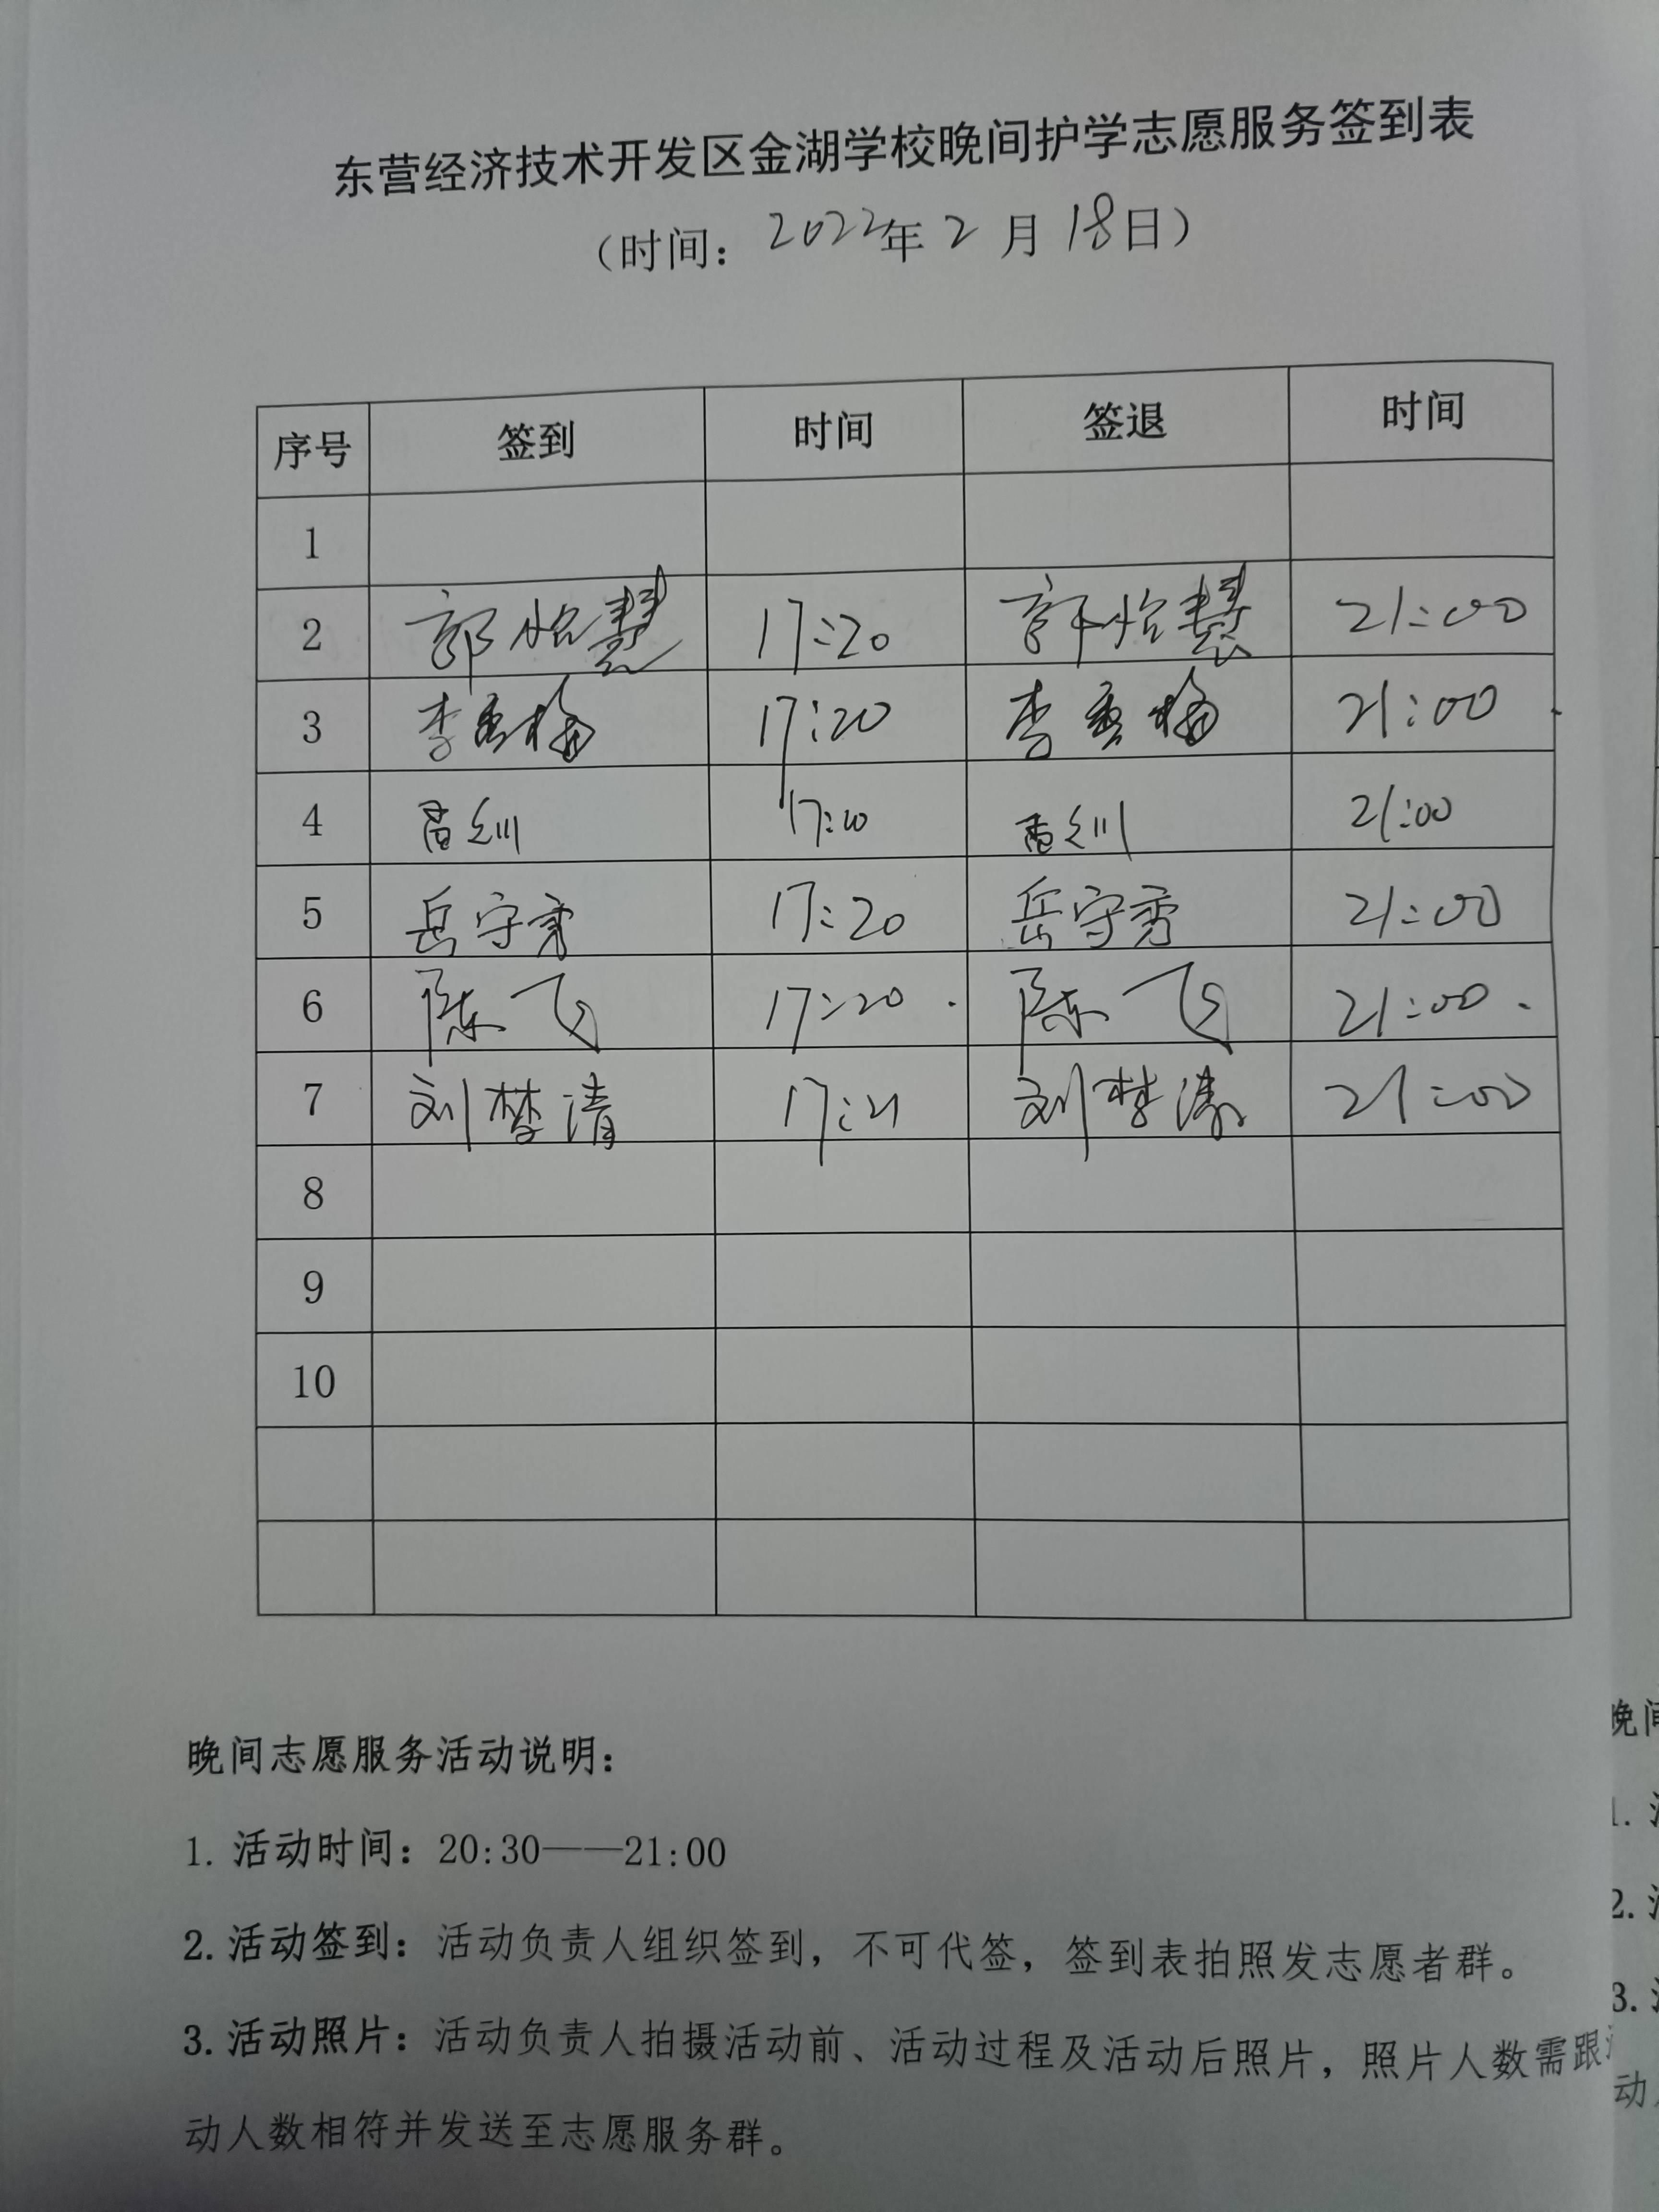 东营经济技术开发区金湖学校晚间护学志愿服务签到表
（时间：2022年2月18日）
序号 签到 时间 签退 时间
1
2 郭怡慧 17:20 郭怡慧 21:00
3 李秀梅 17:20 李秀梅 21:00
4 17:20 21:00
5 岳守秀 17:20 岳守秀 21:00
6 陈飞 17:20. 陈飞 21:00.
7 刘梦清 17:21 刘梦清 21:00
8
9
10
晚间志愿服务活动说明：
1. 活动时间：20:30——21:00
2. 活动签到：活动负责人组织签到，不可代签，签到表拍照发志愿者群。
3. 活动照片：活动负责人拍摄活动前、活动过程及活动后照片，照片人数需跟
动人数相符并发送至志愿服务群。
晚间
1.
2.
3.
动